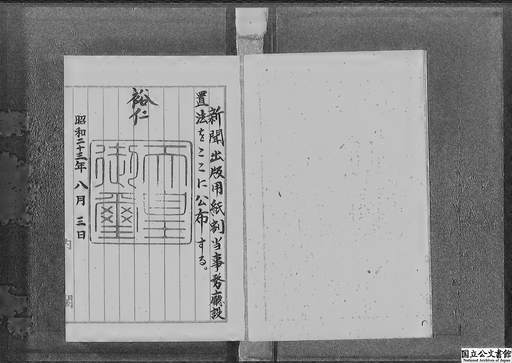 新聞出版用紙割当事務廳設
置法をここに公布する。
裕仁
天皇
御璽
昭和二十三年八月三日
内閣
国立公文書館
National Archives of Japan